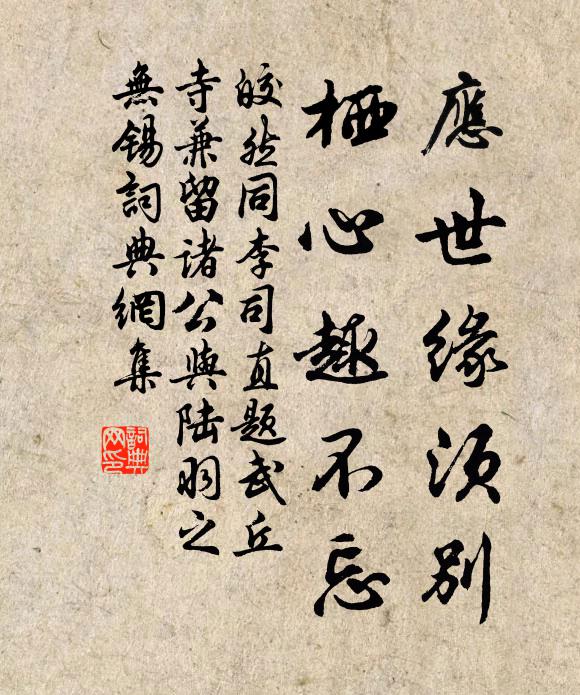 應世緣須別
栖心趣不忘
皎然同李司直題武丘
寺兼留諸公與陸羽之
無錫詞典網集
詞典
网印